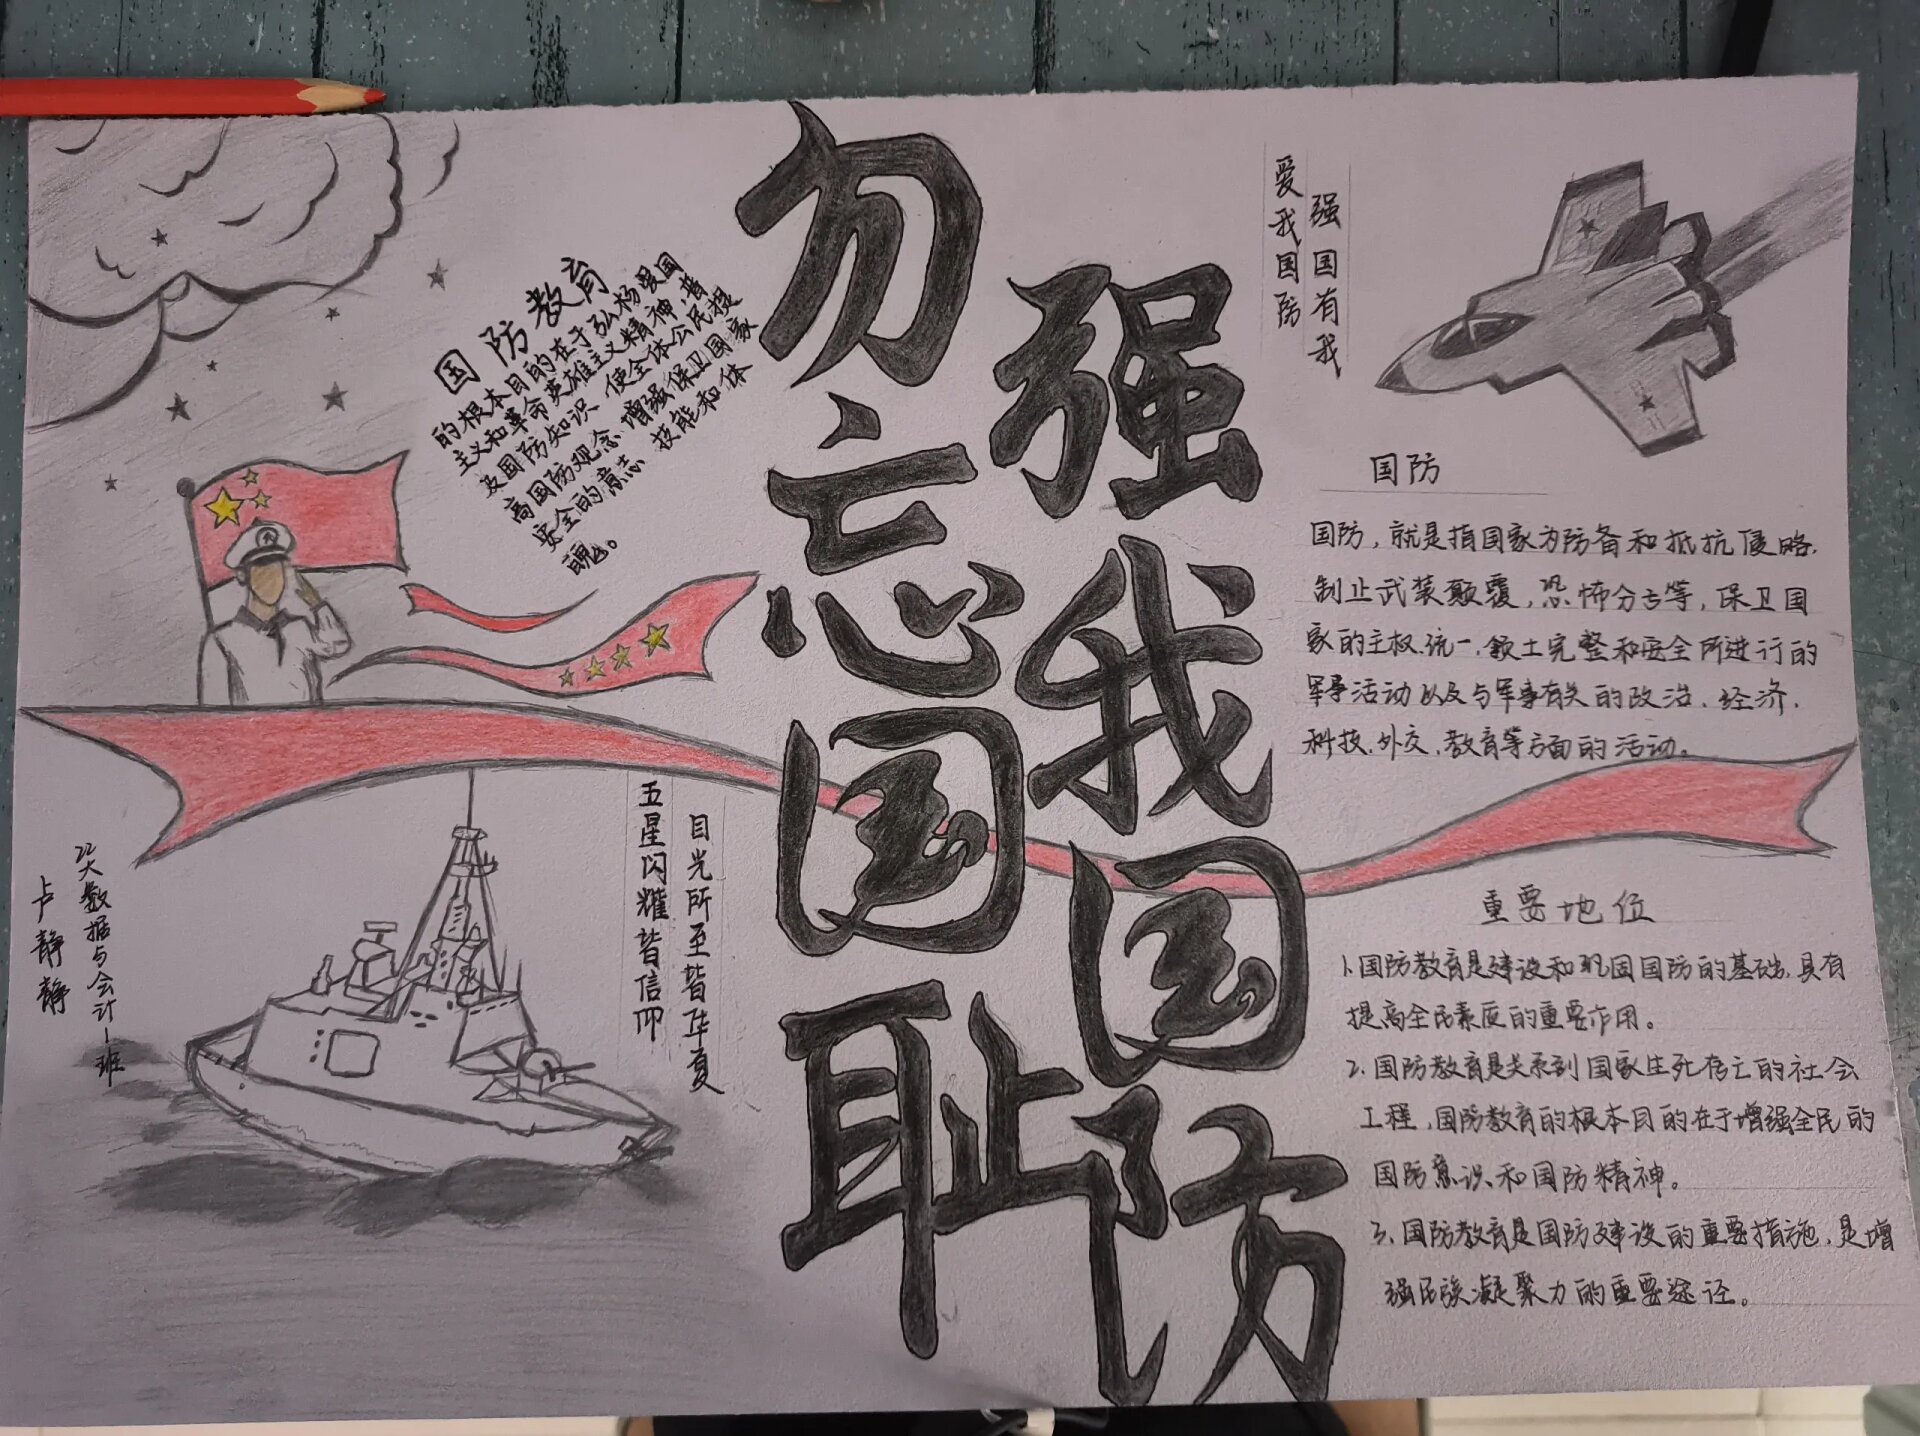 勿忘国耻
强我国防
国防教育
的根本目的在于弘杨爱国
主义和革命英雄主义精神,普
及国防知识 使全体公民提
高国防观念、增强保卫国家
安全的意志 技能和体
魄。
爱我国防
强国有我
国防
国防,就是指国家为防备和抵抗侵略、
制止武装颠覆,恐怖分占等,保卫国
家的主权、统一、领土完整和安全所进行的
军事活动以及与军事有关的政治、经济、
科技、外交、教育等方面的活动。
五星闪耀皆信仰
目光所至皆华夏
22大数据与会计一班
卢静静
重要地位
1、国防教育是建设和巩固国防的基础,具有
提高全民素质的重要作用。
2、国防教育是关系到国家生死存亡的社会
工程,国防教育的根本目的在于增强全民的
国防意识和国防精神。
3、国防教育是国防建设的重要措施,是增
强民族凝聚力的重要途径。